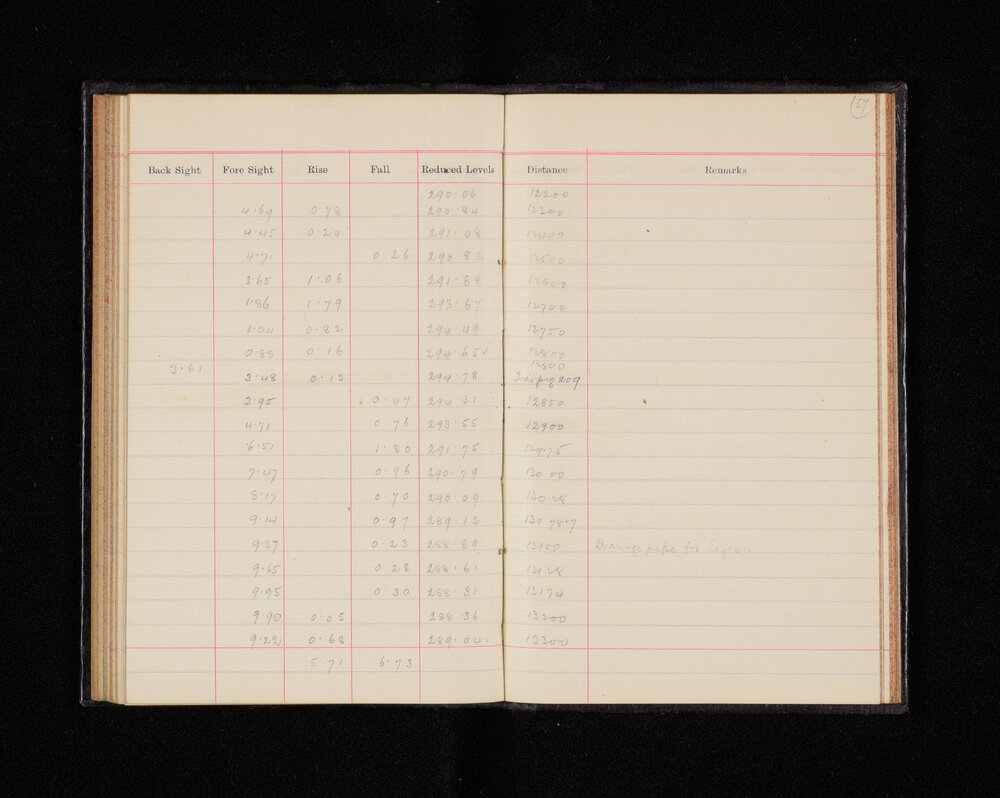 157
Back Sight Fore Sight Rise Fall Reduced Levels Distance Remarks
290.06 12200
4.69 0.78 290.84 12300
4.45 0.24 291.08 12400
4.71 0.26 290.82 12500
3.65 1.06 291.88 12600
1.86 1.79 293.67 12700
1.04 0.82 294.49 12750
0.88 0.16 294.65 12800
12800
3.61 3.48 0.13 294.78 209
3.95 0.47 294.31 12850
4.71 0.76 293.55 12900
6.51 1.80 291.75 12975
7.47 0.96 290.79 13000
8.17 0.70 290.09 13038
9.14 0.97 289.12 13078.7
9.37 0.23 288.89 13100 Drainage pipe for
9.65 0.28 288.61 13138
9.95 0.30 288.31 13174
9.90 0.05 288.36 13200
9.22 0.68 289.04 13300
5.71 6.73